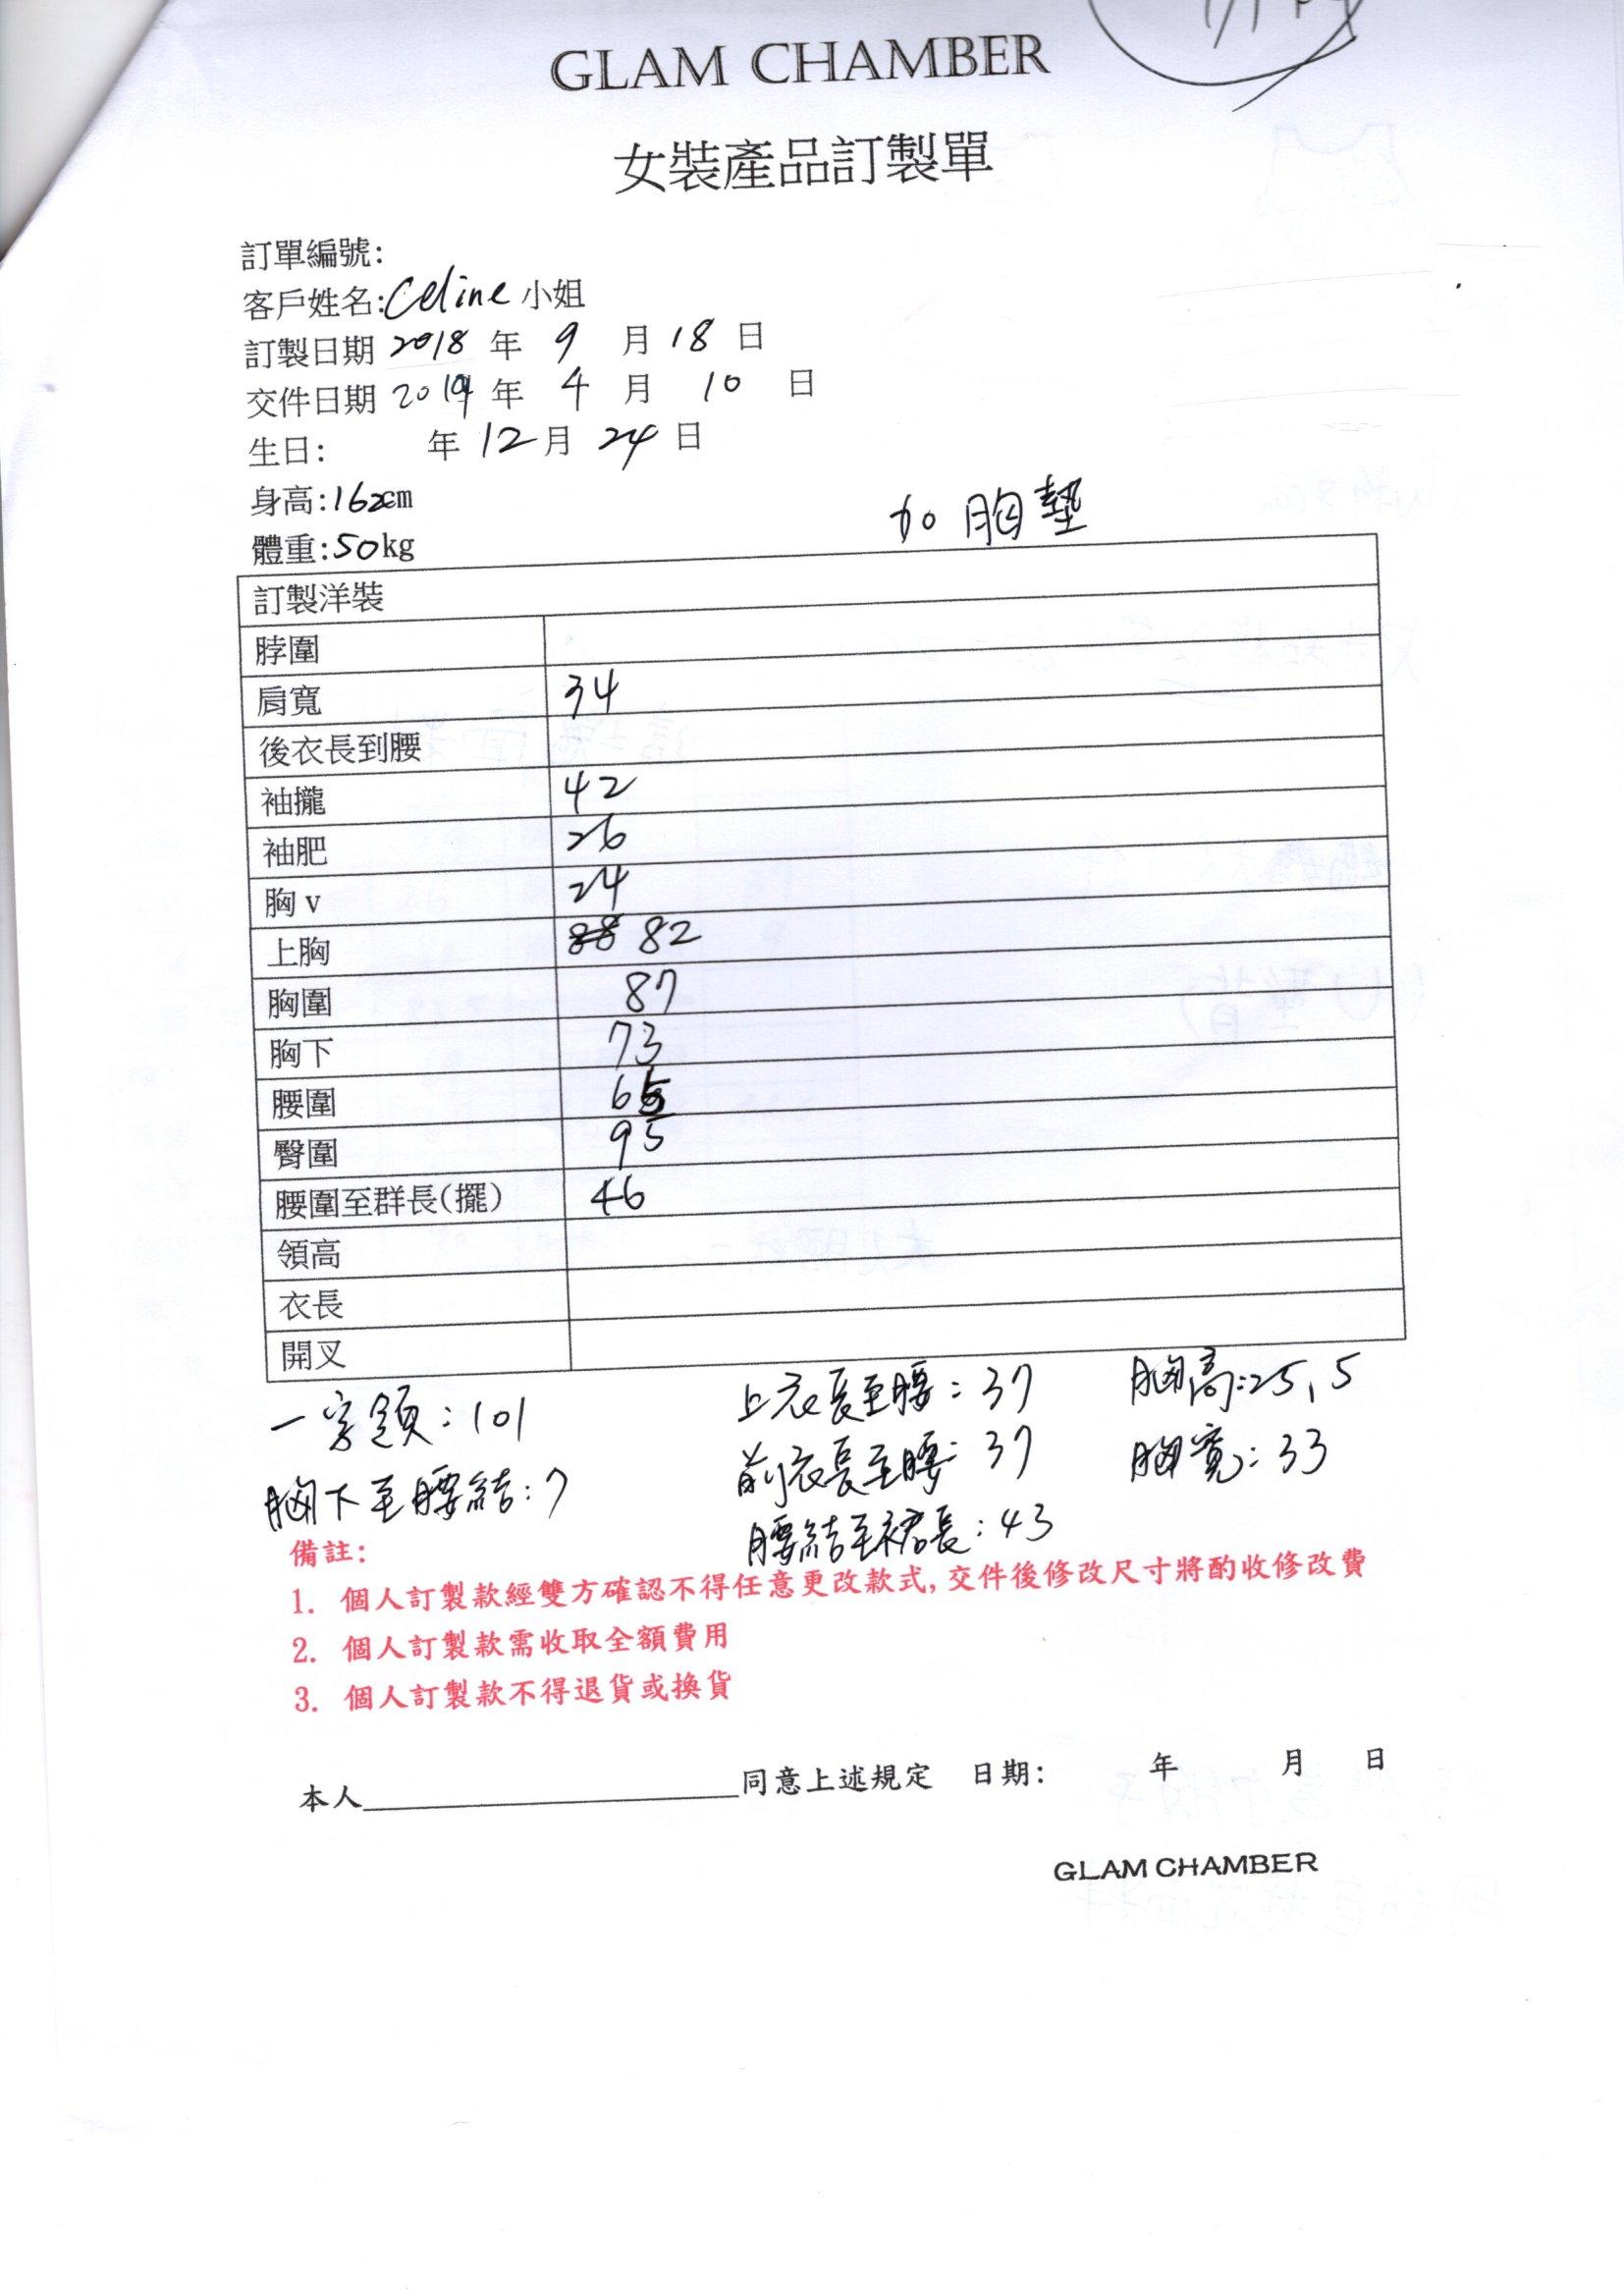 GLAM CHAMBER
女裝產品訂製單
訂單編號:
客戶姓名:Celine 小姐
訂製日期 2018 年 9 月 18 日
交件日期 2019 年 4 月 10 日
生日: 年 12 月 24 日
身高:162cm
體重:50kg
加胸墊
訂製洋裝
脖圍
肩寬 34
後衣長到腰
袖攏 42
袖肥 26
胸 v 24
上胸 88 82
胸圍 87
胸下 73
腰圍 65
臀圍 95
腰圍至群長(擺) 46
領高
衣長
開叉
一字領:101 上衣長至腰:37 胸高:25.5
胸下至腰結:7 前衣長至腰:37 胸寬:33
腰結至裙長:43
備註:
1. 個人訂製款經雙方確認不得任意更改款式,交件後修改尺寸將酌收修改費
2. 個人訂製款需收取全額費用
3. 個人訂製款不得退貨或換貨
本人 同意上述規定 日期: 年 月 日
GLAM CHAMBER